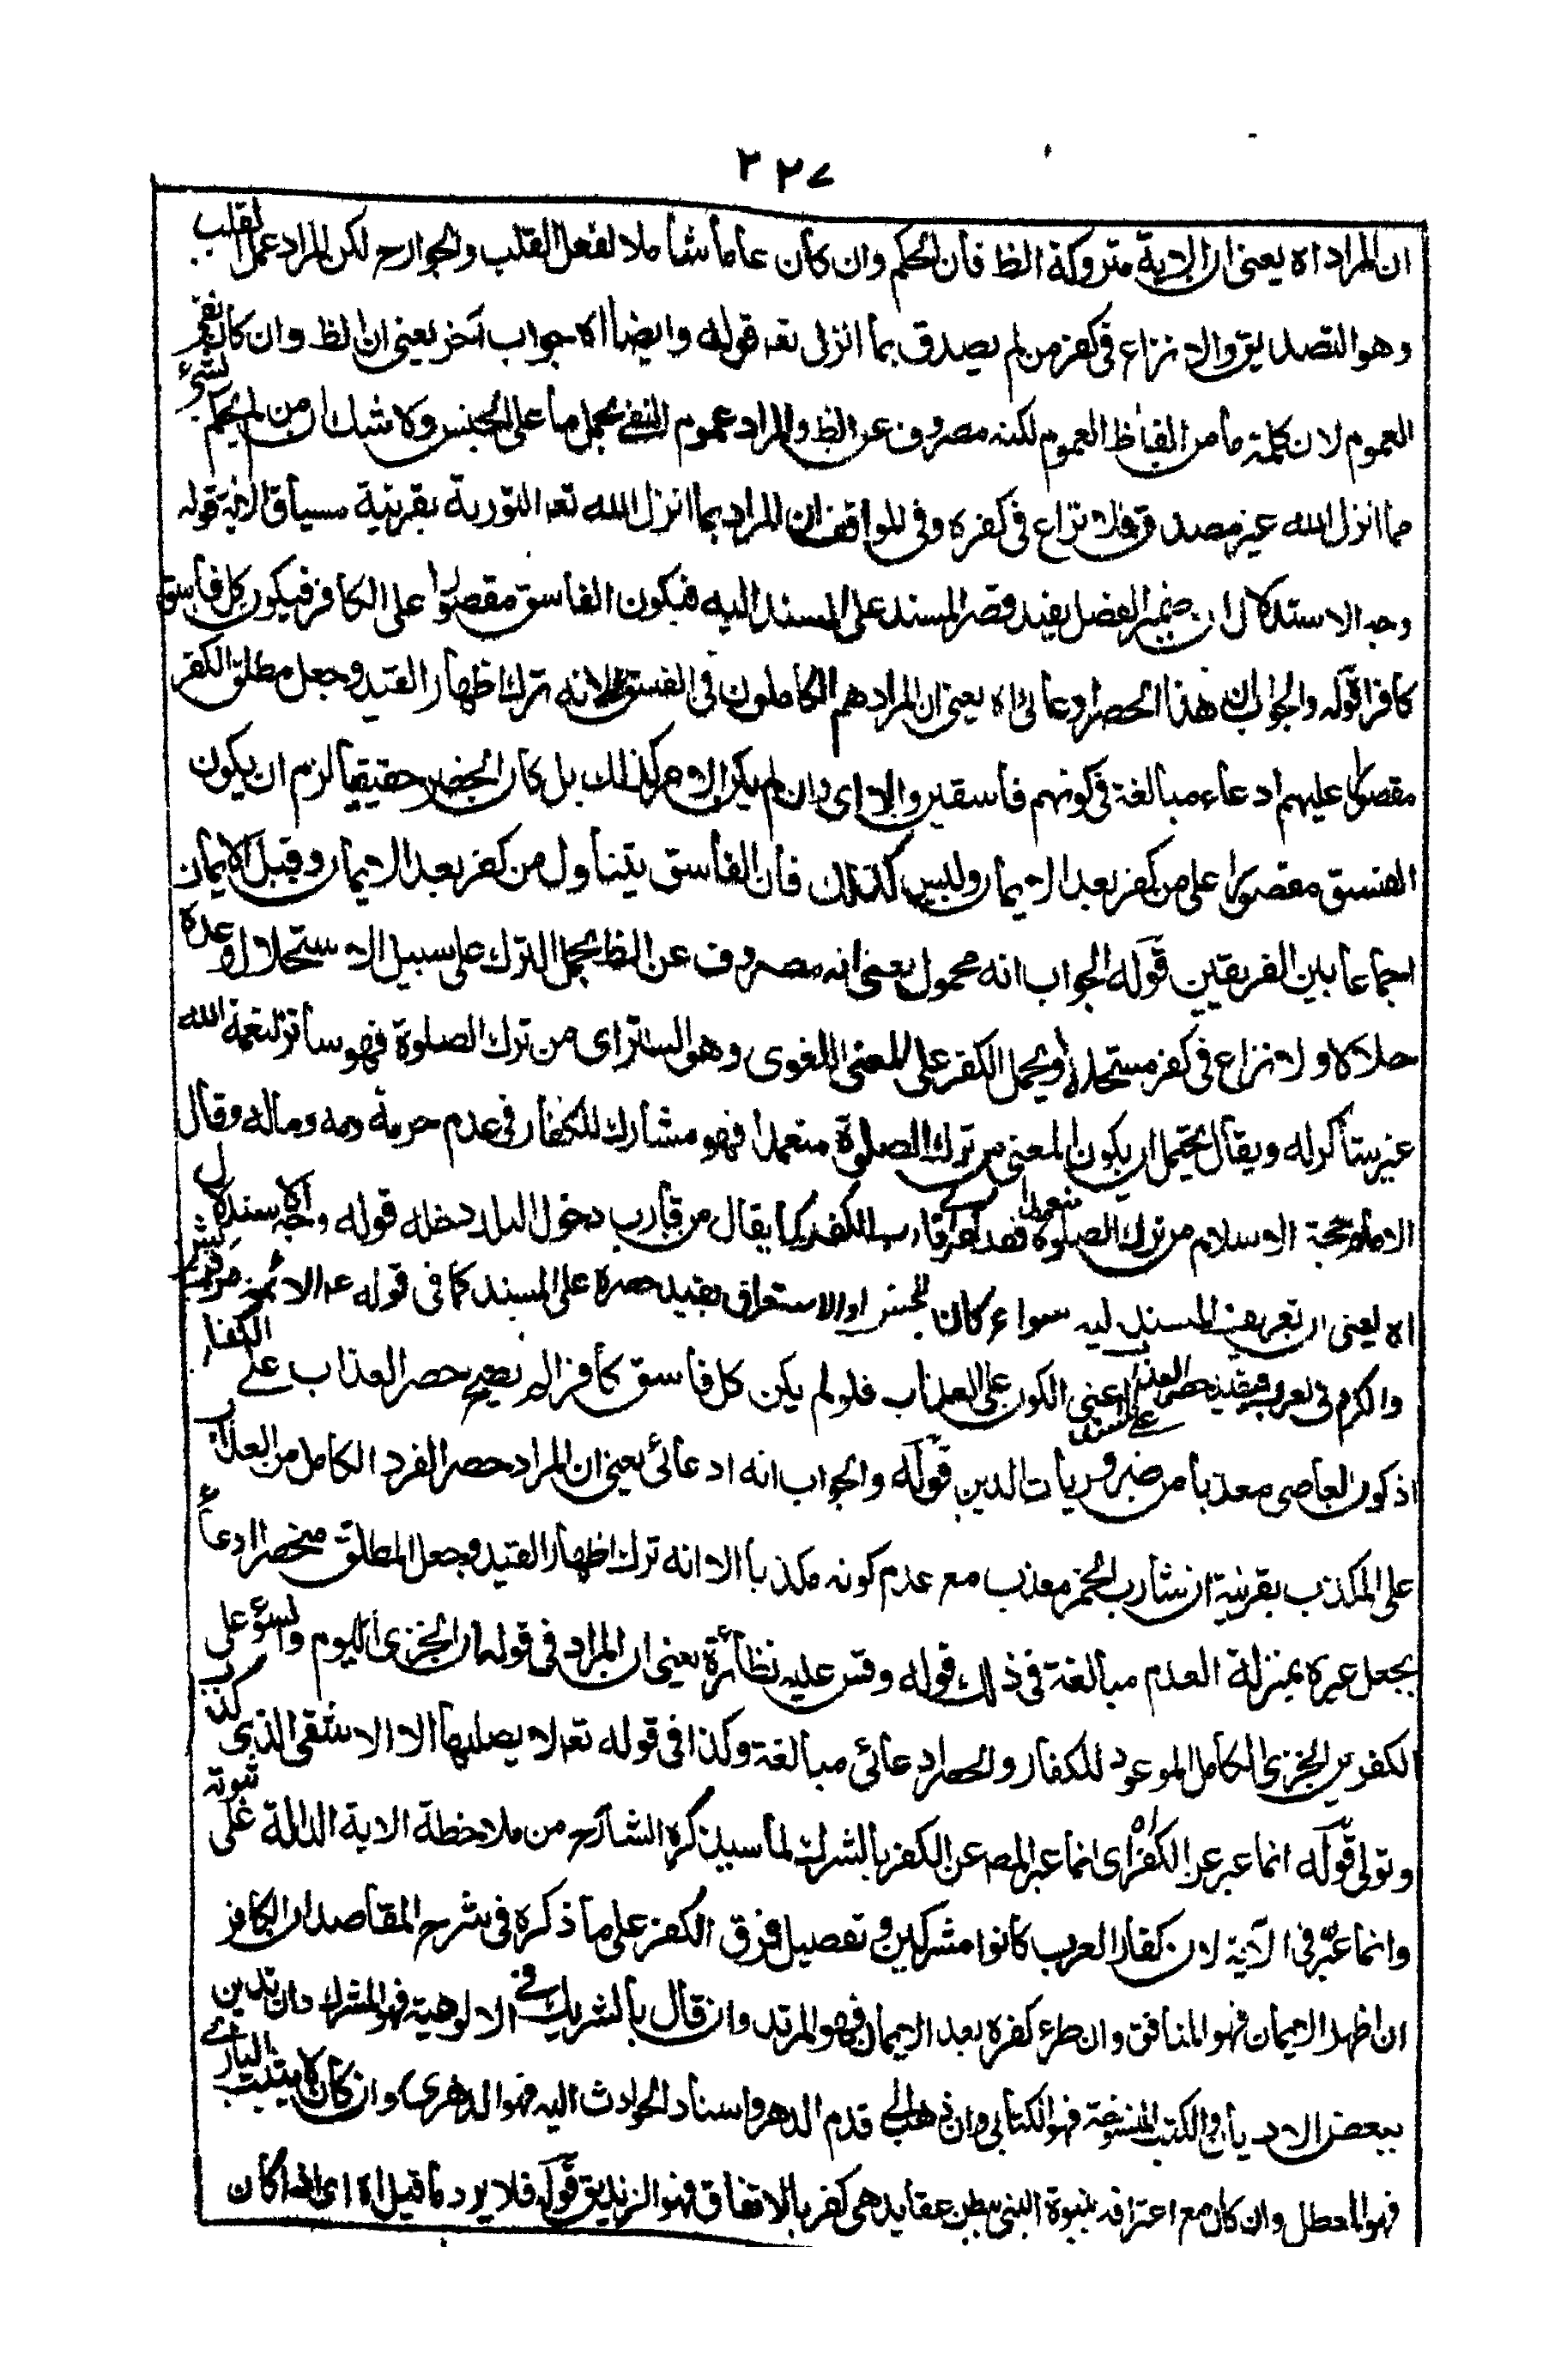 ٢٢٧
ان المراد اه يعنى ان الاية متروكة الظ فان الحكم وان كان عاما شاملا لفعل القلب والجوارح لكن المراد عمل القلب
وهو التصديق ولا نزاع فى كفر من لم يصدق بما انزل تعه قوله وايضا اه جواب آخر يعنى ان الظ وان كان نفى
العموم لان كلمة ما من الفاظ العموم لكنه مصروف عن الظ والمراد عموم النفى بحمل ما على الجنس ولا شك ان من لم يحكم بشئ
مما انزل الله غير مصدق فلا نزاع فى كفره وفى المواقف ان المراد بما انزل الله تعه التورية بقرينة سياق الاية قوله
وجه الاستدلال ان ضمير الفصل يفيد قصر المسند على المسند اليه فيكون الفاسق مقصورا على الكافر فيكون كل فاسق
كافرا قوله والجواب ان هذا الحصر ادعائى اه يعنى ان المراد هم الكاملون فى الفسق الا انه ترك اظهار القيد وجعل مطلق الكفر
مقصورا عليهم ادعاء مبالغة فى كونهم فاسقين والا اى وان لم يكن الامر كذلك بل كان الحصر حقيقيا لزم ان يكون
الفسق مقصورا على من كفر بعد الايمان وليس كذلك فان الفاسق يتناول من كفر بعد الايمان وقبل الايمان
اجماعا بين الفريقين قوله الجواب انه محمول يعنى انه مصروف عن الظ بحمل الترك على سبيل الاستحلال وعده
حلالا ولا نزاع فى كفر مستحله او يحمل الكفر على المعنى اللغوى وهو الستر اى من ترك الصلوة فهو ساتر لنعمة الله
غير شاكر له ويقال يحتمل ان يكون المعنى من ترك الصلوة متعمدا فهو مشارك للكفار فى عدم حرمة دمه وماله وقال
الامام حجة الاسلام من ترك الصلوة متعمدا فقد كفر اى قارب الكفر كما يقال من قارب دخول البلد دخله قوله وجه الاستدلال
اه يعنى ان تعريف المسند اليه سواء كان للجنس او الاستغراق يفيد حصره على المسند كما فى قوله عم الائمة من قريش
والكرم فى العرب فيفيد حصر العذاب على المسند اعنى الكون على العذاب فلو لم يكن كل فاسق كافرا لم يصح حصر العذاب على الكفار
اذ كون العاصى معذبا من ضروريات الدين قوله والجواب انه ادعائى يعنى ان المراد حصر الفرد الكامل من العذاب
على المكذب بقرينة ان شارب الخمر معذب مع عدم كونه مكذبا الا انه ترك اظهار القيد وجعل المطلق منحصرا ادعاء
بجعل غيره بمنزلة العدم مبالغة فى ذلك قوله وقس عليه نظائره يعنى ان المراد فى قوله ان الخزى اليوم والسوء على
الكفرين الخزى الكامل الموعود للكفار والحصر ادعائى مبالغة وكذا فى قوله تعه لا يصليها الا الاشقى الذى كذب
وتولى قوله انما عبر عن الكفر اه اى انما عبر المصه عن الكفر بالشرك لما سيذكره الشارح من ملاحظة الاية الدالة على ثبوته
وانما عبر فى الآية لان كفار العرب كانوا مشركين وتفصيل فرق الكفر على ما ذكره فى شرح المقاصد ان الكافر
ان اظهر الايمان فهو المنافق وان طرء كفره بعد الايمان فهو المرتد وان قال بالشريك فى الالوهية فهو المشرك وان تدين
ببعض الاديان والكتب المنسوخة فهو الكتابى وان ذهب الى قدم الدهر واسناد الحوادث اليه فهو الدهرى وان كان لا يثبت البارى
فهو المعطل وان كان مع اعترافه بنبوة النبى يبطن عقايد هى كفر بالاتفاق فهو الزنديق قوله فلا يرد ما قيل اه اى اذا كان